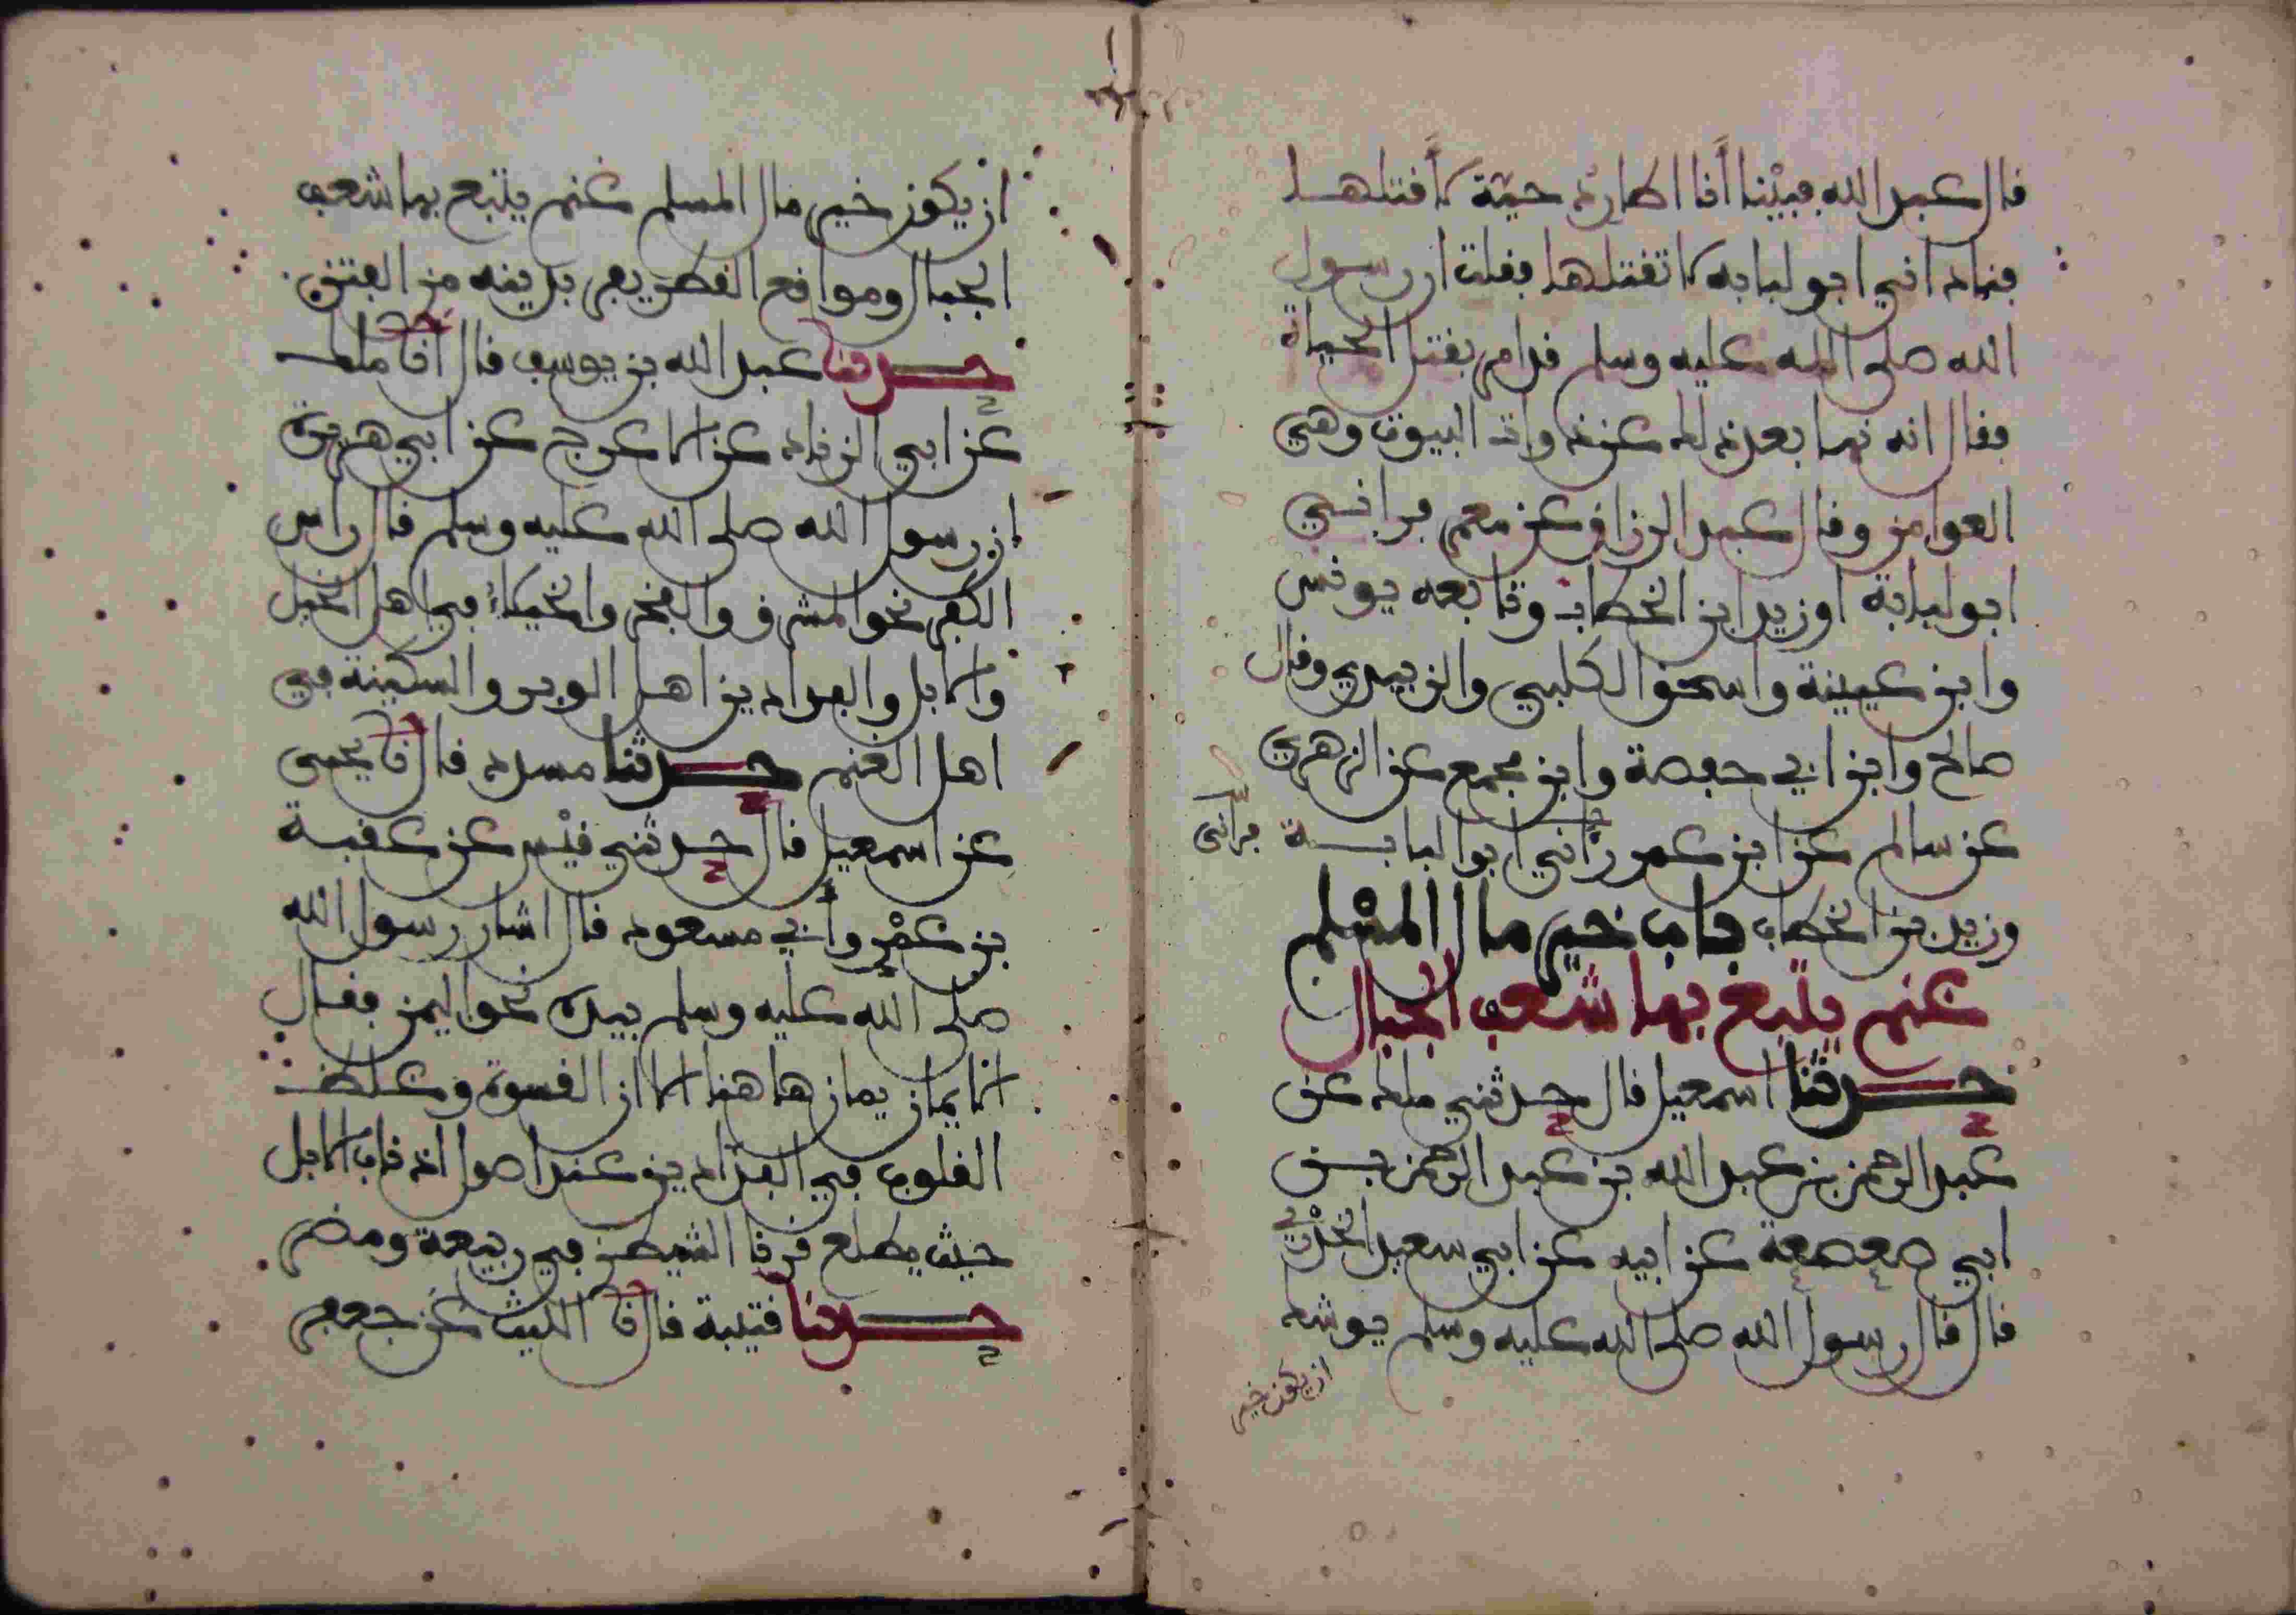 قال عبد الله فبينا أنا اطارد حية لأقتلها
فناداني ابو لبابه لا تقتلها فقلت ان رسول
الله صلى الله عليه وسلم قد امر بقتل الحيات
فقال انه نها بعد ذلك عن ذوات البيوت وهي
العوامر وقال عبد الرزاق عن معمر فرآني
ابو لبابة او زيد ابن الخطاب وتابعه يونس
وابن عيينة واسحق الكلبي والزبيدي وقال
صالح وابن ابي حفصة وابن مجمع عن الزهري
عن سالم عن ابن عمر رآني ابو لبابة
فرآني
وزيد بن الخطاب باب خير مال المسلم
غنم يتبع بها شعف الجبال
حدثنا اسمعيل قال حدثني ملك عن
عبد الرحمن بن عبد الله بن عبد الرحمن بن
ابي صعصعة عن ابيه عن ابي سعيد الخدري
قال قال رسول الله صلى الله عليه وسلم يوشك
ان يكون خير
ان يكون خير مال المسلم غنم يتبع بها شعف
الجبال ومواقع القطر يفر بدينه من الفتن
حدثنا عبد الله بن يوسف قال انا ملك
عن ابي الزناد عن الاعرج عن ابي هريرة
ان رسول الله صلى الله عليه وسلم قال راس
الكفر نحو المشرق والفخر والخيلاء في اهل الخيل
والابل والفدادين اهل الوبر والسكينة في
اهل الغنم حدثنا مسدد قال نا يحيى
عن اسمعيل قال حدثني قيس عن عقبة
بن عمرو أبي مسعود قال اشار رسول الله
صلى الله عليه وسلم بيده نحو اليمن فقال
الايمان يمان هاهنا الا ان القسوة وغلظ
القلوب في الفدادين عند اصول اذناب الابل
حيث يطلع قرنا الشيطن في ربيعة ومضر
حدثنا قتيبة قال نا الليث عن جعفر